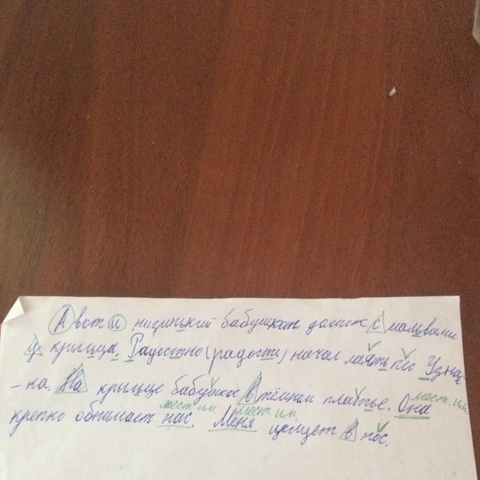 А вот и низенький бабушкин домик с мальвами
у крыльца. Радостно (радости) начал лаять пёс Узна-
-ка. На крыльце бабушка в тёмном платье. Она мест. им.
крепко обнимает нас. мест. им. Меня мест. им. целует в нос.